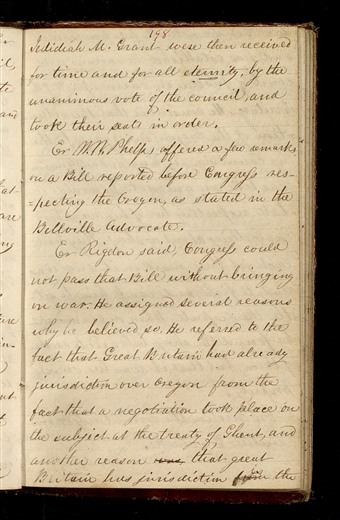 198
Jedidiah M. Grant were then received
for time and for all eternity, by the
unanimous vote of the council, and
took their seats in order.
Er W. W. Phelps offered a few remarks
on a Bill reported before Congress res-
-pecting the Oregon, as stated in the
Bellville Advocate.
Er Rigdon said, Congress could
not pass that Bill without bringing
on war. He assigned several reasons
why he believed so. He referred to the
fact that Great Britain had already
jurisdiction over Oregon from the
fact that a negotiation took place on
the subject at the treaty of Ghent, and
another reason that great
Britain has jurisdiction the